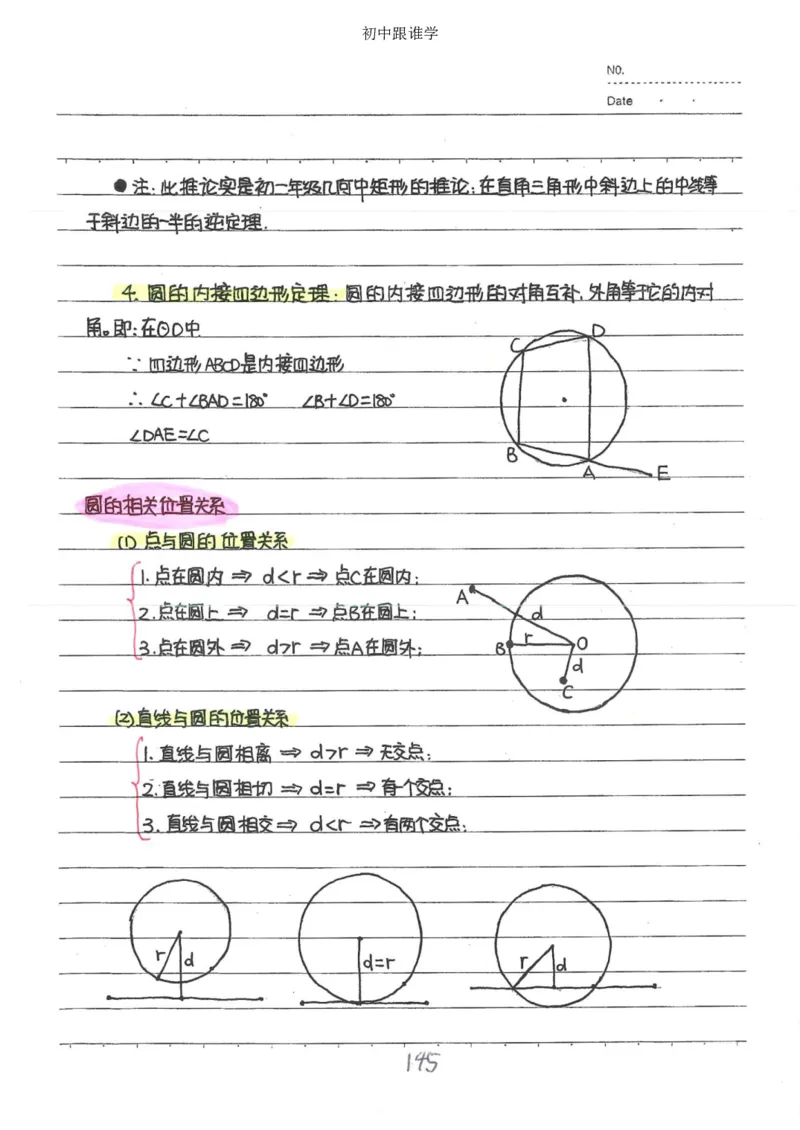 初中跟谁学
NO.
Date
●注:此推论实是初一年级几何中矩形的推论:在直角三角形中斜边上的中线等
于斜边的一半的逆定理.
4. 圆的内接四边形定理:圆的内接四边形的对角互补,外角等于它的内对
角。即:在⊙O中
∵ 四边形ABCD是内接四边形
∴ ∠C+∠BAD=180° ∠B+∠D=180°
∠DAE=∠C
C D
B A E
圆的相关位置关系
(1) 点与圆的位置关系
1.点在圆内 ⇒ d<r ⇒ 点C在圆内;
2.点在圆上 ⇒ d=r ⇒ 点B在圆上;
3.点在圆外 ⇒ d>r ⇒ 点A在圆外;
A d
B r O
d
C
(2)直线与圆的位置关系
1.直线与圆相离 ⇒ d>r ⇒ 无交点;
2.直线与圆相切 ⇒ d=r ⇒ 有一个交点;
3.直线与圆相交 ⇒ d<r ⇒ 有两个交点;
r d d=r r d
145